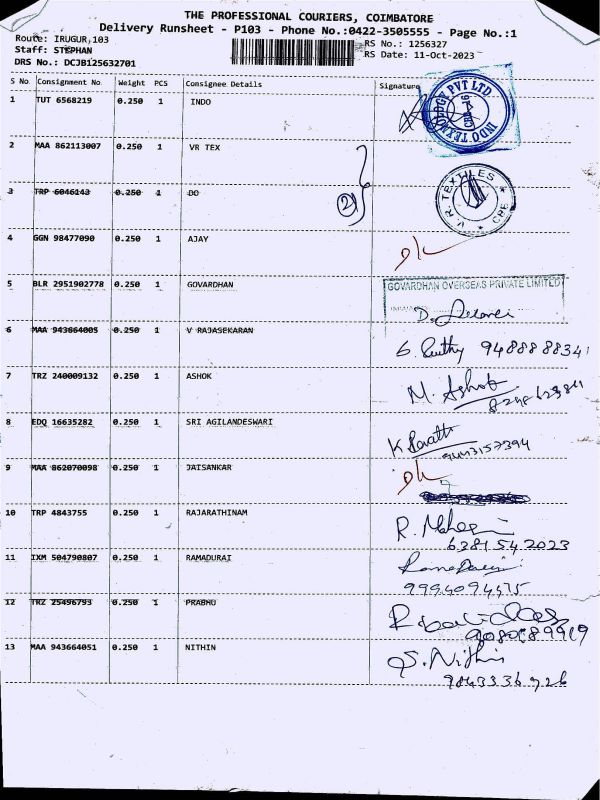 THE PROFESSIONAL COURIERS, COIMBATORE
Delivery Runsheet - P103 - Phone No.:0422-3505555 - Page No.:1
Route: IRUGUR,103
RS No.: 1256327
Staff: STEPHAN
RS Date: 11-Oct-2023
DRS No.: DCJB125632701
S No. Consignment No. Weight PCS Consignee Details Signature
1 TUT 6568219 0.250 1 INDO
INDO TEXNOLOGY PVT LTD
2 MAA 862113007 0.250 1 VR TEX
V.R. TEXTILES CBE
3 TRP 6046143 0.250 1 DO
2
4 GGN 98477090 0.250 1 AJAY
5 BLR 2951902778 0.250 1 GOVARDHAN
GOVARDHAN OVERSEAS PRIVATE LIMITED
6 MAA 943664005 0.250 1 V RAJASEKARAN
7 TRZ 240009132 0.250 1 ASHOK
M. Ashok
8 EDQ 16635282 0.250 1 SRI AGILANDESWARI
9 MAA 862070098 0.250 1 JAISANKAR
10 TRP 4843755 0.250 1 RAJARATHINAM
6381542023
11 IXM 504790807 0.250 1 RAMADURAI
9994094475
12 TRZ 25496793 0.250 1 PRABHU
13 MAA 943664051 0.250 1 NITHIN
S. Nithin
9843336726